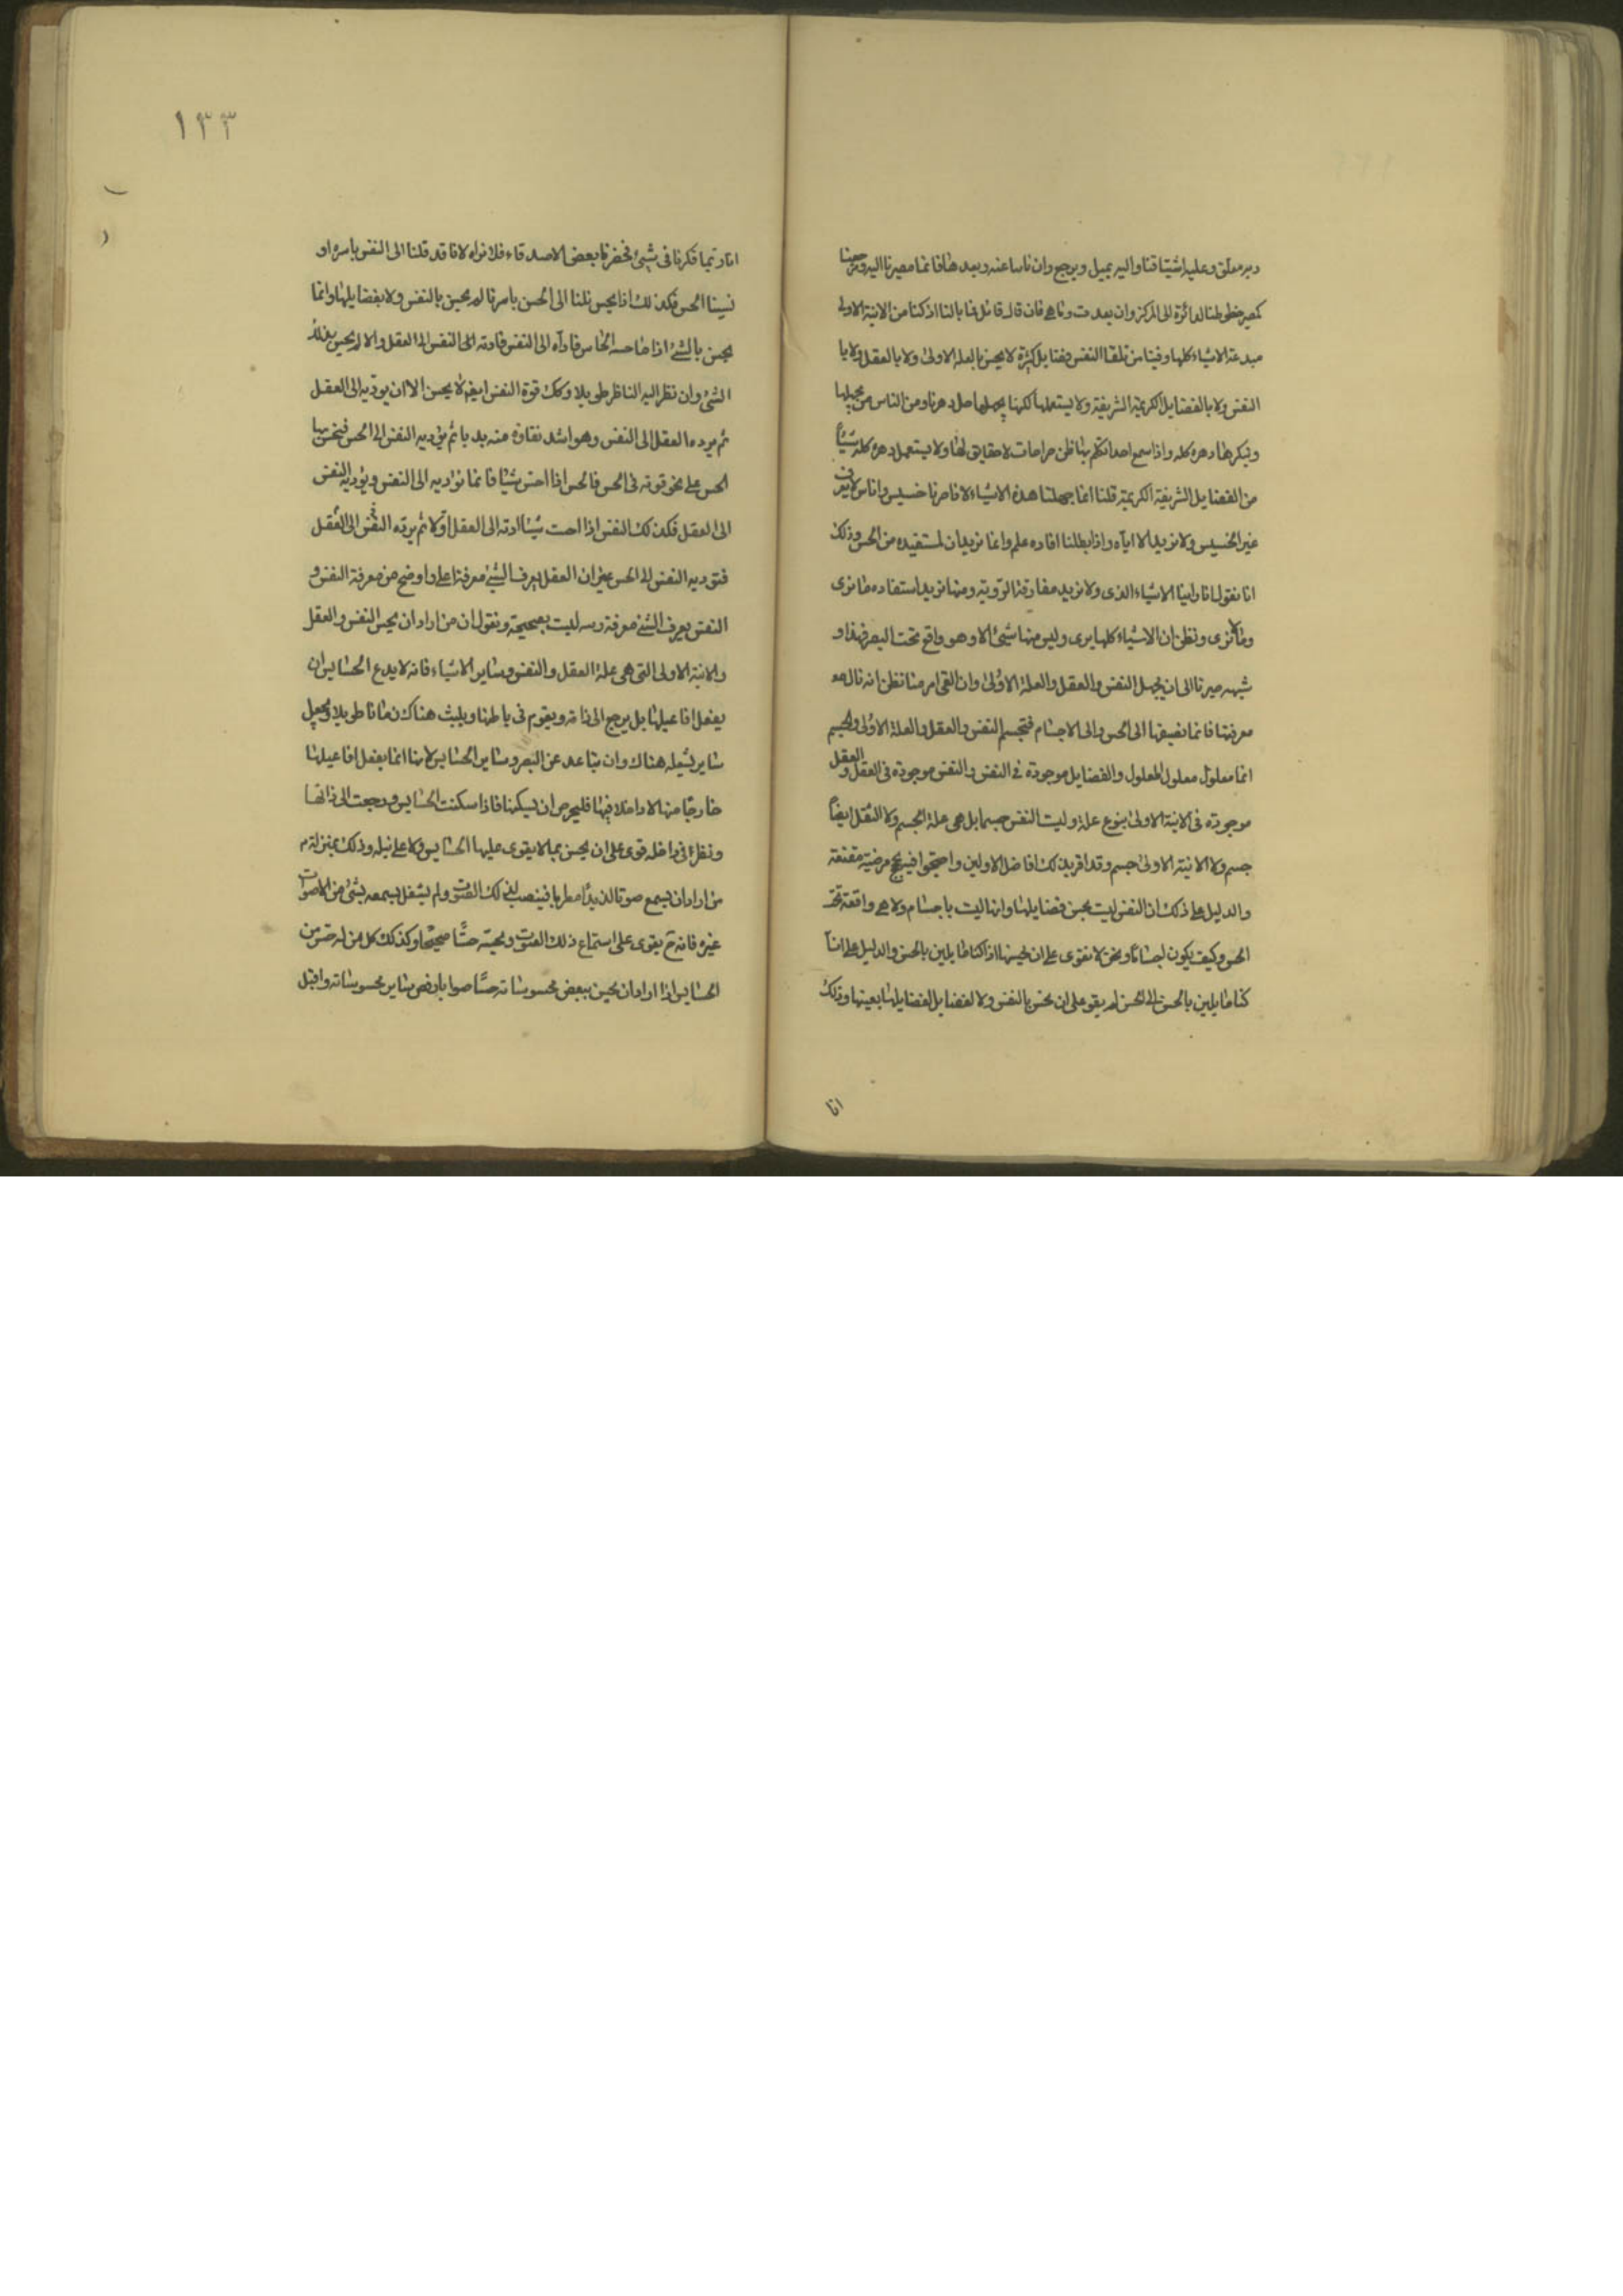 وبه معلق وعليه اشتياقنا واليه يميل ويرجع وان ناسا عنه وبعدها فانما مصيرنا اليه ومرجعنا
كمصير خطوطنا لدائرة الى المركز وان بعدت وناهى فان قال قائل فما بالنا اذ كنا من الانية الاولى
مبدعة الاشياء كلها وفينا من تلقا النفس فضايل كثيرة لا يحس بالعلة الاولى ولا بالعقل ولا با
النفس ولا بالفضايل الكريمة الشريفة ولا يستعملها لكنها يجهلها جل دهرنا ومن الناس من يجهلها
وينكرها دهره كله واذا سمع احدا تكلم بها ظن خرافات لا حقايق لها ولا يستعمل دهره كله شيئا
من الفضايل الشريفة الكريمة قلنا انما جهلنا هذه الاشياء لانا صرنا خسيس واناس لا يعرف
غير الخسيس ولا نريد الا اياه واذا بطلنا افاده علم وانما نريد ان نستفيده من الحس وذلك
انا نقول انا راينا الاشياء الذى ولا نريد مفارقة الروية ومنها نريد استفاده ما نرى
وما لا نرى ونظن ان الاشياء كلها يرى وليس منها شئ الا وهو واقع تحت البصر فهذا و
شبهه صيرنا الى ان يجهل النفس والعقل والعلة الاولى وان القى امر منا نظن انه نال
معرفتها فانما نضيفها الى الحس والى الاجسام فتجسم النفس والعقل والعلة الاولى والجسم
انما معلول معلول المعلول والفضايل موجودة فى النفس والنفس موجودة فى العقل والعقل
موجودة فى الانية الاولى بنوع علة وليت النفس جسما بل هى علة الجسم ولا العقل ايضاً
جسم ولا الانية الاولى جسم وقد اقر بذلك افاضل الاولين واحتجوا فيه بحج مرضية مقنعة
والدليل على ذلك ان النفس ليت بحس فضايلها وانها ليت باجسام ولا هى واقعة تحت
الحس وكيف يكون اجساما ونحن لا نقوى على ان نحسها اذا كنا مايلين بالحس والدليل على انا
كنا مايلين بالحس الى الحس لم يقو على ان نحس بالنفس ولا لفضايل الفضايلها بعينها وذلك
انا
١٣٣
انا ربما فكرنا فى شئ فحضرنا بعض الاصدقاء فلا نراه لانا قد قلنا الى النفس باسره او
نسينا الحس فكذلك اذا يحس نلنا الى الحس باسرنا لم يحس بالنفس ولا بفضايلها وانما
يحس بالشئ اذا ما حسه الحاس فاداه الى النفس فادته الى النفس الى العقل والا لم يحس بذلك
الشئ وان نظر اليه الناظر طويلا وكك قوة النفس ايضا لا يحس الا ان يوديه الى العقل
ثم يرده العقل الى النفس وهو اشد نقاوة منه بديا ثم يؤديه النفس الى الحس فيحس بها
الحس على نحو قوته فى الحس فالحس اذا احس شيئا فانما نؤديه الى النفس ويؤديه النفس
الى العقل فكذلك النفس اذا احست شيئا ادته الى العقل اولا ثم يرده النفس الى العقل
فتوديه النفس الى الحس غير ان العقل يعرف الشئ معرفة اعلى واوضح من معرفة النفس و
النفس يعرف الشئ معرفة رسه ليت بصحيحة ونقول ان من اراد ان يحس النفس والعقل
والانية الاولى التى هى علة العقل والنفس وساير الاشياء فانه لا يدع الحسايس ان
يفعل افاعيلها بل يرجع الى ذاته ويقوم فى باطنها ويلبث هناك زمانا طويلا ويجعل
ساير شغله هناك وان تباعد عن البصر وساير الحسايس لانها انما يفعل افاعيلها
خارجا منها لا داخلا فيها فليحرص ان يسكنها فاذا سكنت الحسايس ورجعت الى ذاتها
ونظر فى داخله قوى على ان يحس بما لا يقوى عليها الحسايس ولا على نيله وذلك بمنزلة
من اراد ان يسمع صوتا لذيذا مطربا فينصب لذلك الصوت ولم يشغل بسمعه بشئ من الاصوات
غيره فانه يقوى على استماع ذلك الصوت ويحسه حسّا صحيحا وكذلك كل من له حس من
الحسايس اذا اراد ان يحس ببعض محسوساته حسّا صوابا رفض ساير محسوساته واقبل